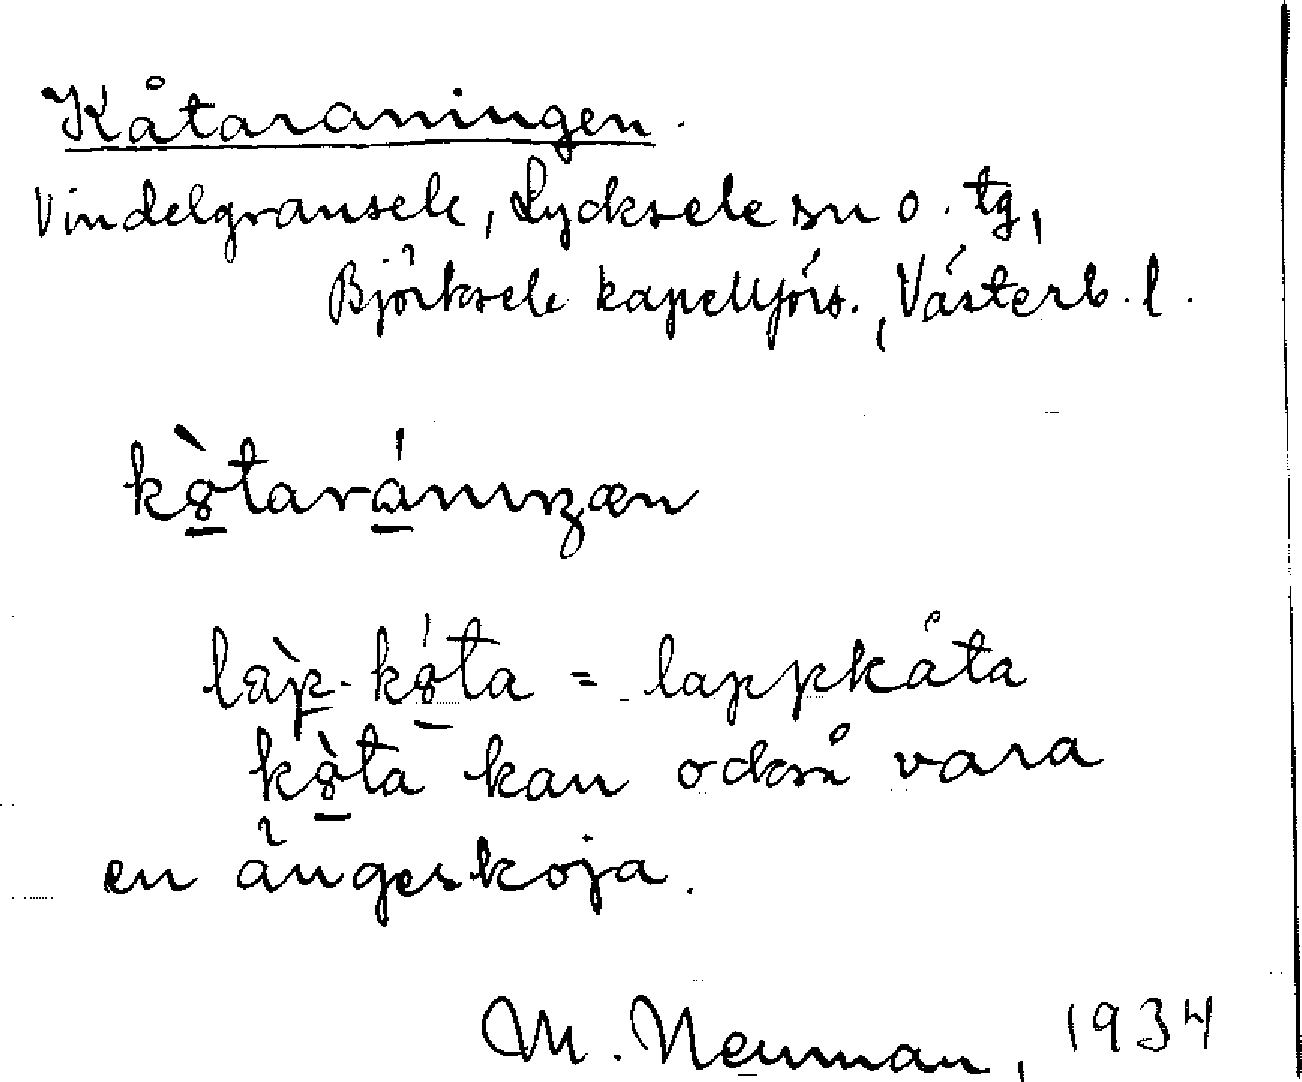 Kåtaraningen.
Vindelgransele, Lycksele sn o. tg,
Björksele kapellförs., Västerb. l.
kȣ̠̀tará̠nıŋæn
làp-kȣ̠́ta = lappkåta
kȣ̠̀ta kan också vara
en ängeskoja.
M. Neuman, 1934